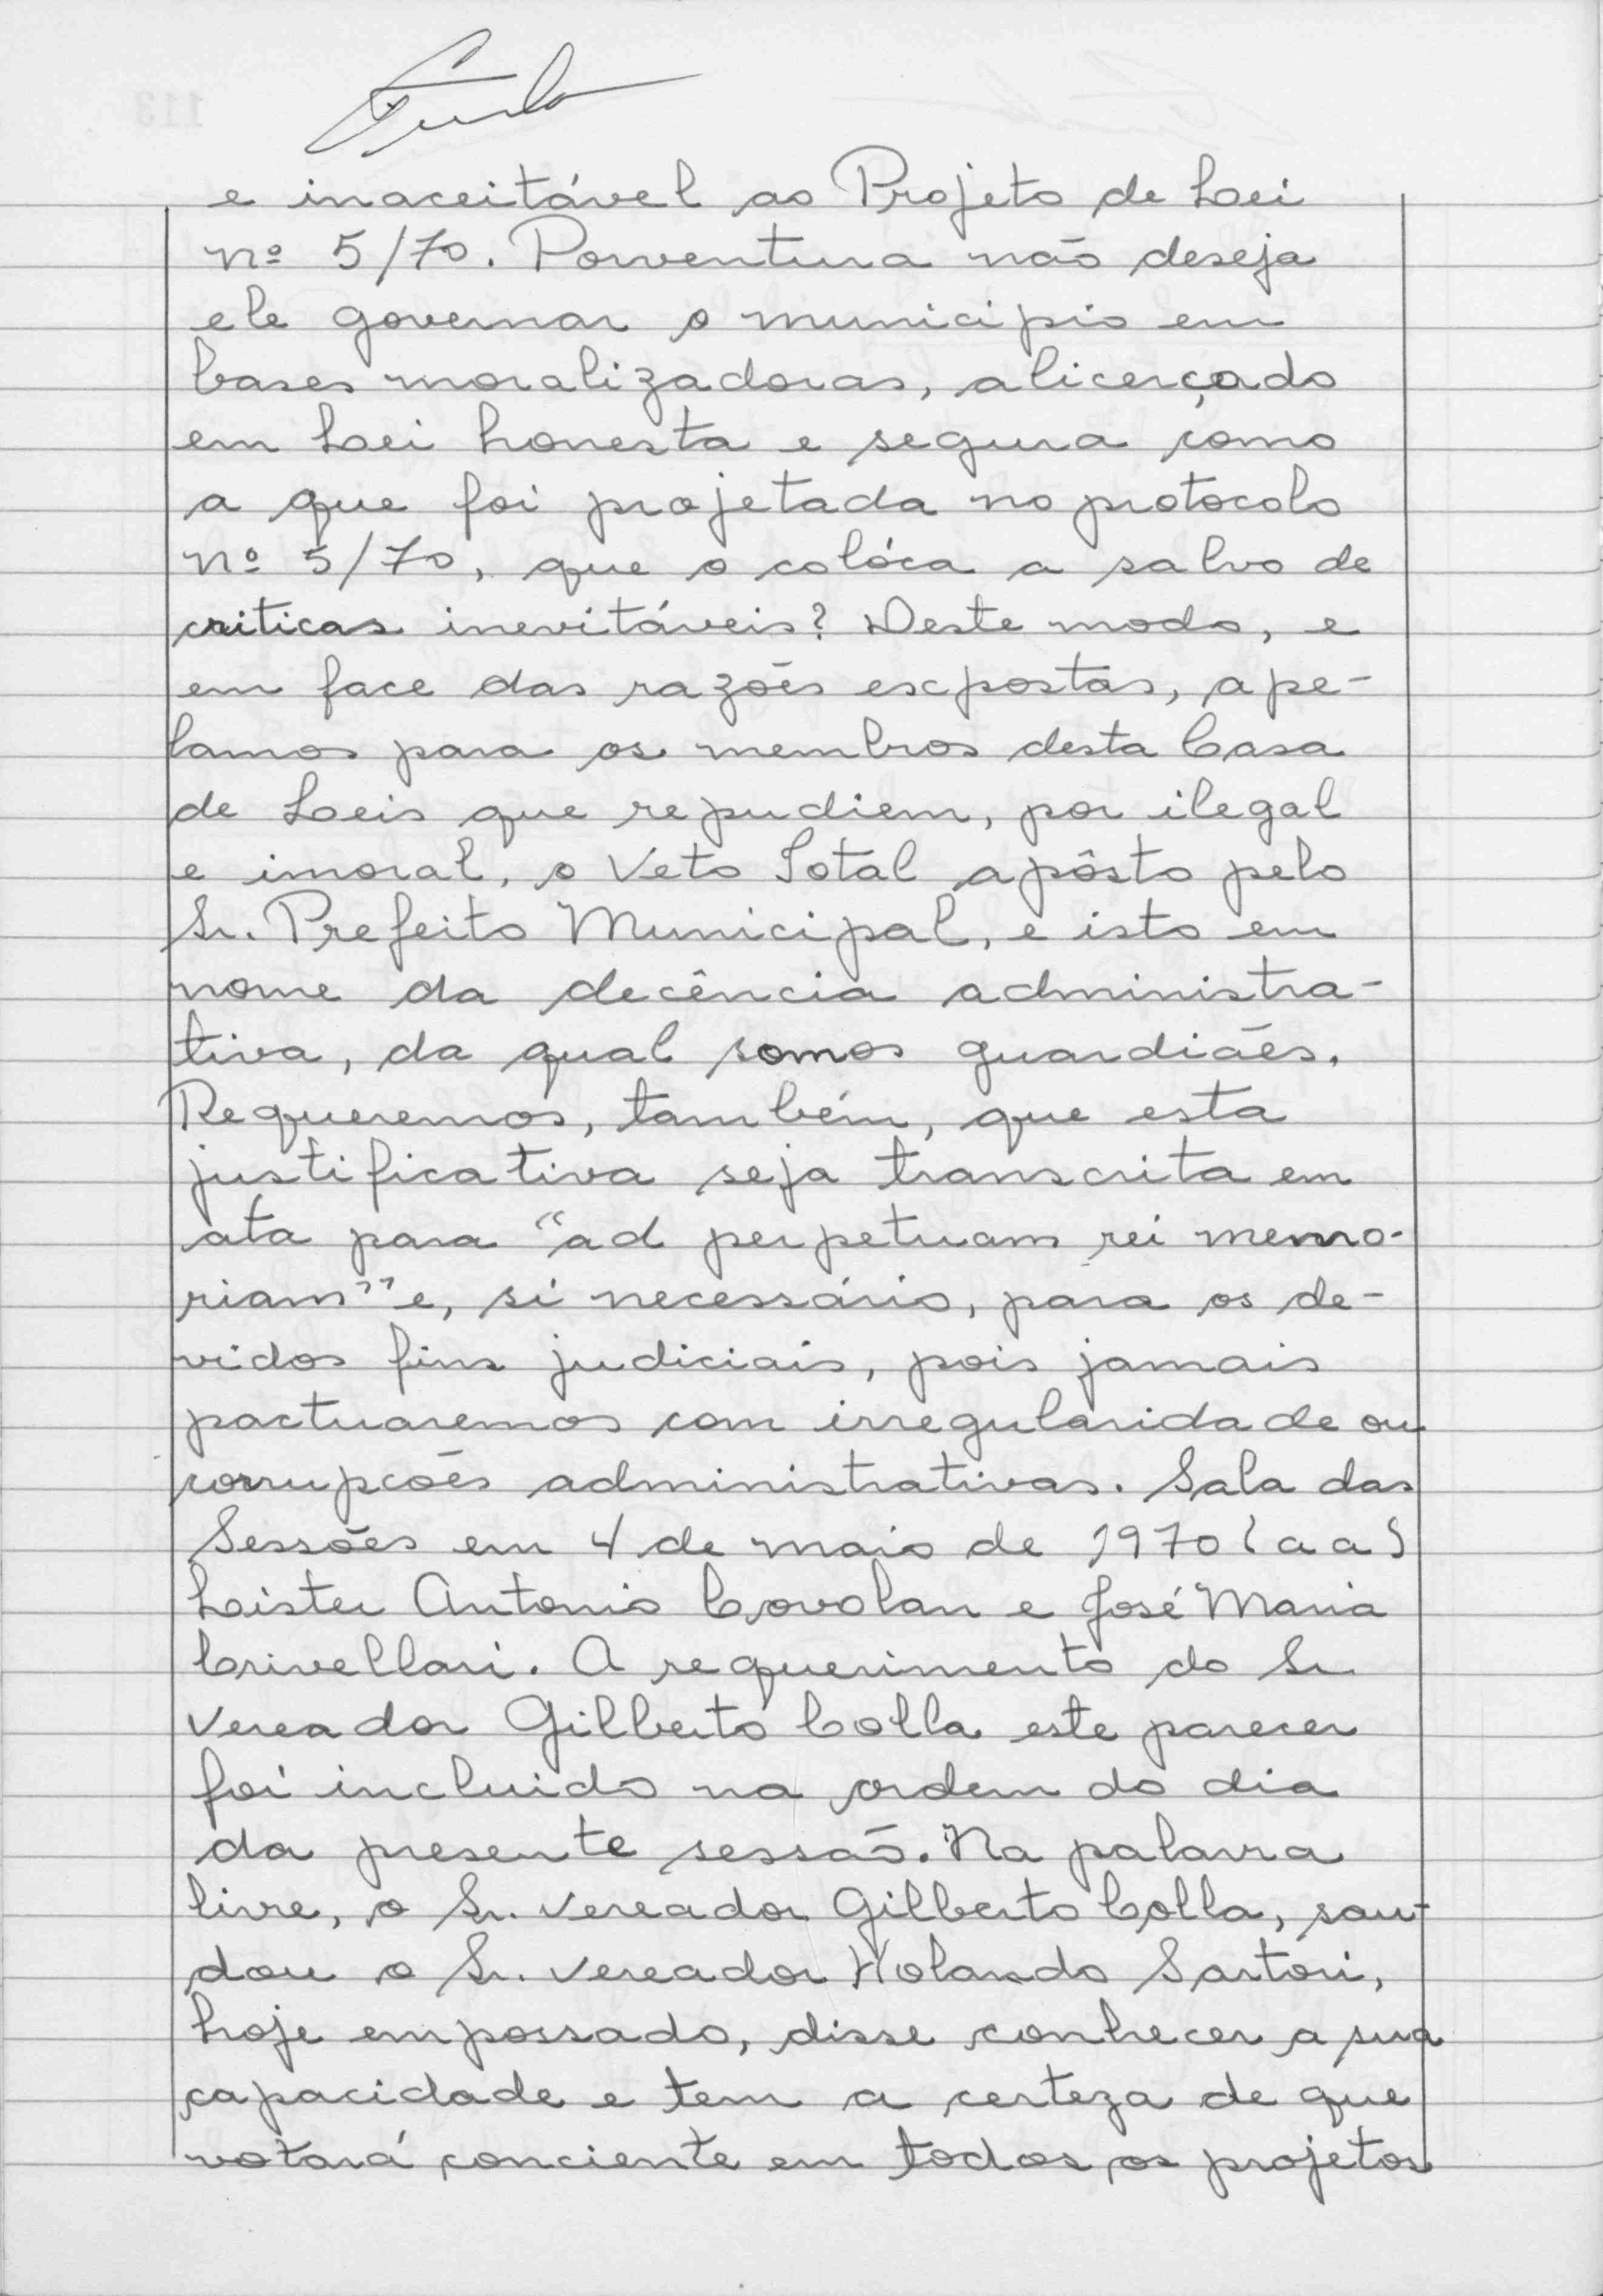 e inaceitável ao Projeto de Lei
nº 5/70. Porventura não deseja
ele governar o municipio em
bases moralizadoras, alicerçado
em Lei honesta e segura como
a que foi projetada no protocolo
nº 5/70, que o colóca a salvo de
criticas inevitáveis? Deste modo, e
em face das razões expostas, ape-
lamos para os membros desta Casa
de Leis que repudiem, por ilegal
e imoral, o Veto Total apôsto pelo
Sr. Prefeito Municipal, e isto em
nome da decência administra-
tiva, da qual somos guardiães.
Requeremos, também, que esta
justificativa seja transcrita em
ata para "ad perpetuam rei memo-
riam" e, si necessário, para os de-
vidos fins judiciais, pois jamais
pactuaremos com irregularidade ou
corrupcões administrativas. Sala das
Sessões em 4 de maio de 1970 (aa)
Leister Antonio Covolan e José Maria
Crivellari. A requerimento do Sr
Vereador Gilberto Colla este parecer
foi incluido na ordem do dia
da presente sessão. Na palavra
livre, o Sr. Vereador Gilberto Colla, sau-
dou o Sr. Vereador Holando Sartori,
hoje empossado, disse conhecer a sua
capacidade e tem a certeza de que
votará conciente em todos os projetos